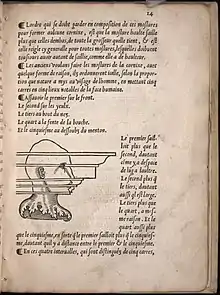 14
L'ordre qui se doibt garder en composition de ces moslures
pour former aulcune cornice, est que la moslure haulte saille
plus que celles dembas, de toute la grosseur quelle tient, & est
telle reigle sy generalle pour toutes moslures, lesquelles doibuent
tousiours auoir autant de saillie, comme elle a de haulteur.
Les anciens voulans faire les moslures de la cornice, auec
quelque forme de raison, ilz ordonnarent taille, selon la proportion
que nature a mys au visage de l'homme, en mettant cinq
carrez en cinq lieux notables de la face humaine.
Assauoir le premier sur le front.
Le second sus les yeulx.
Le tiers au bout du nez.
Le quart a la fente de la bouche.
Et le cinquiesme au dessoubz du menton.
Le premier sailloit
plus que le
second, dautant
cõme y a despais
de lung a laultre.
Le second plus q̃
le tiers, dautant
aussi q̃l est large.
Le tiers plus que
le quart, a mesme
raison. Et le
quart aussi plus
que le cinquiesme, en sorte q̃ le premier sailloit plus q̃ le cinquiesme,
dautant quil y a distance entre le premier & le cinquiesme.
En ces quatre interualles, qui sont distinguez de cinq carrez,